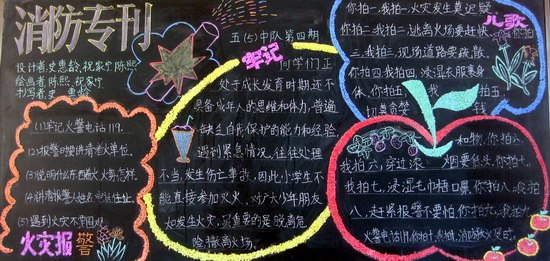 消防专刊
五(5)中队 第四期
设计者:史惠龄,祝家宁 陈熙
绘画者:陈熙 祝家宁
抄写者:史惠龄
(1)牢记火警电话119.
(2)报警时要讲清着火单位.
(3)说明什么东西着火,火势怎样
(4)讲清报警人姓名,电话,住址.
(5)遇到火灾不要围观
火灾报警
牢记
同学们正
处于成长发育时期,还不
具备成年人的思维和体力,普遍
缺乏自我保护的能力和经验,
遇到紧急情况,往往处理
不当,发生伤亡事故,因此小学生不
能直接参加灭火,对广大少年朋友,
如发生火灾,最重要的是脱离危
险,撤离火场。
儿歌
你拍一,我拍一,火灾发生莫迟疑
你拍二,我拍二,逃离火场要赶快
三,我拍三,现场道路要疏散,
你拍四,我拍四,浸湿衣服裹身
体,你拍五,我拍五,
钱
和物,你拍六
我拍六,穿过浓烟要低头,你拍七,
我拍七,浸湿毛巾捂口鼻,你拍八,我拍
八,赶紧报警不要怕,你拍九,我拍九
火警电话119,你拍十,我拍十,消防救火及时.